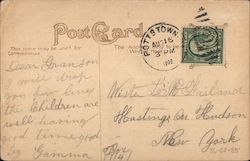 Post Card
This space may be used for
Correspondence
The Address
to be
POTTSTOWN
AUG 16
3 PM
Dear Granson
I will drop
you few lines
the Children are
well having
good time good
by Gamma
Hastings on Hudson
New York